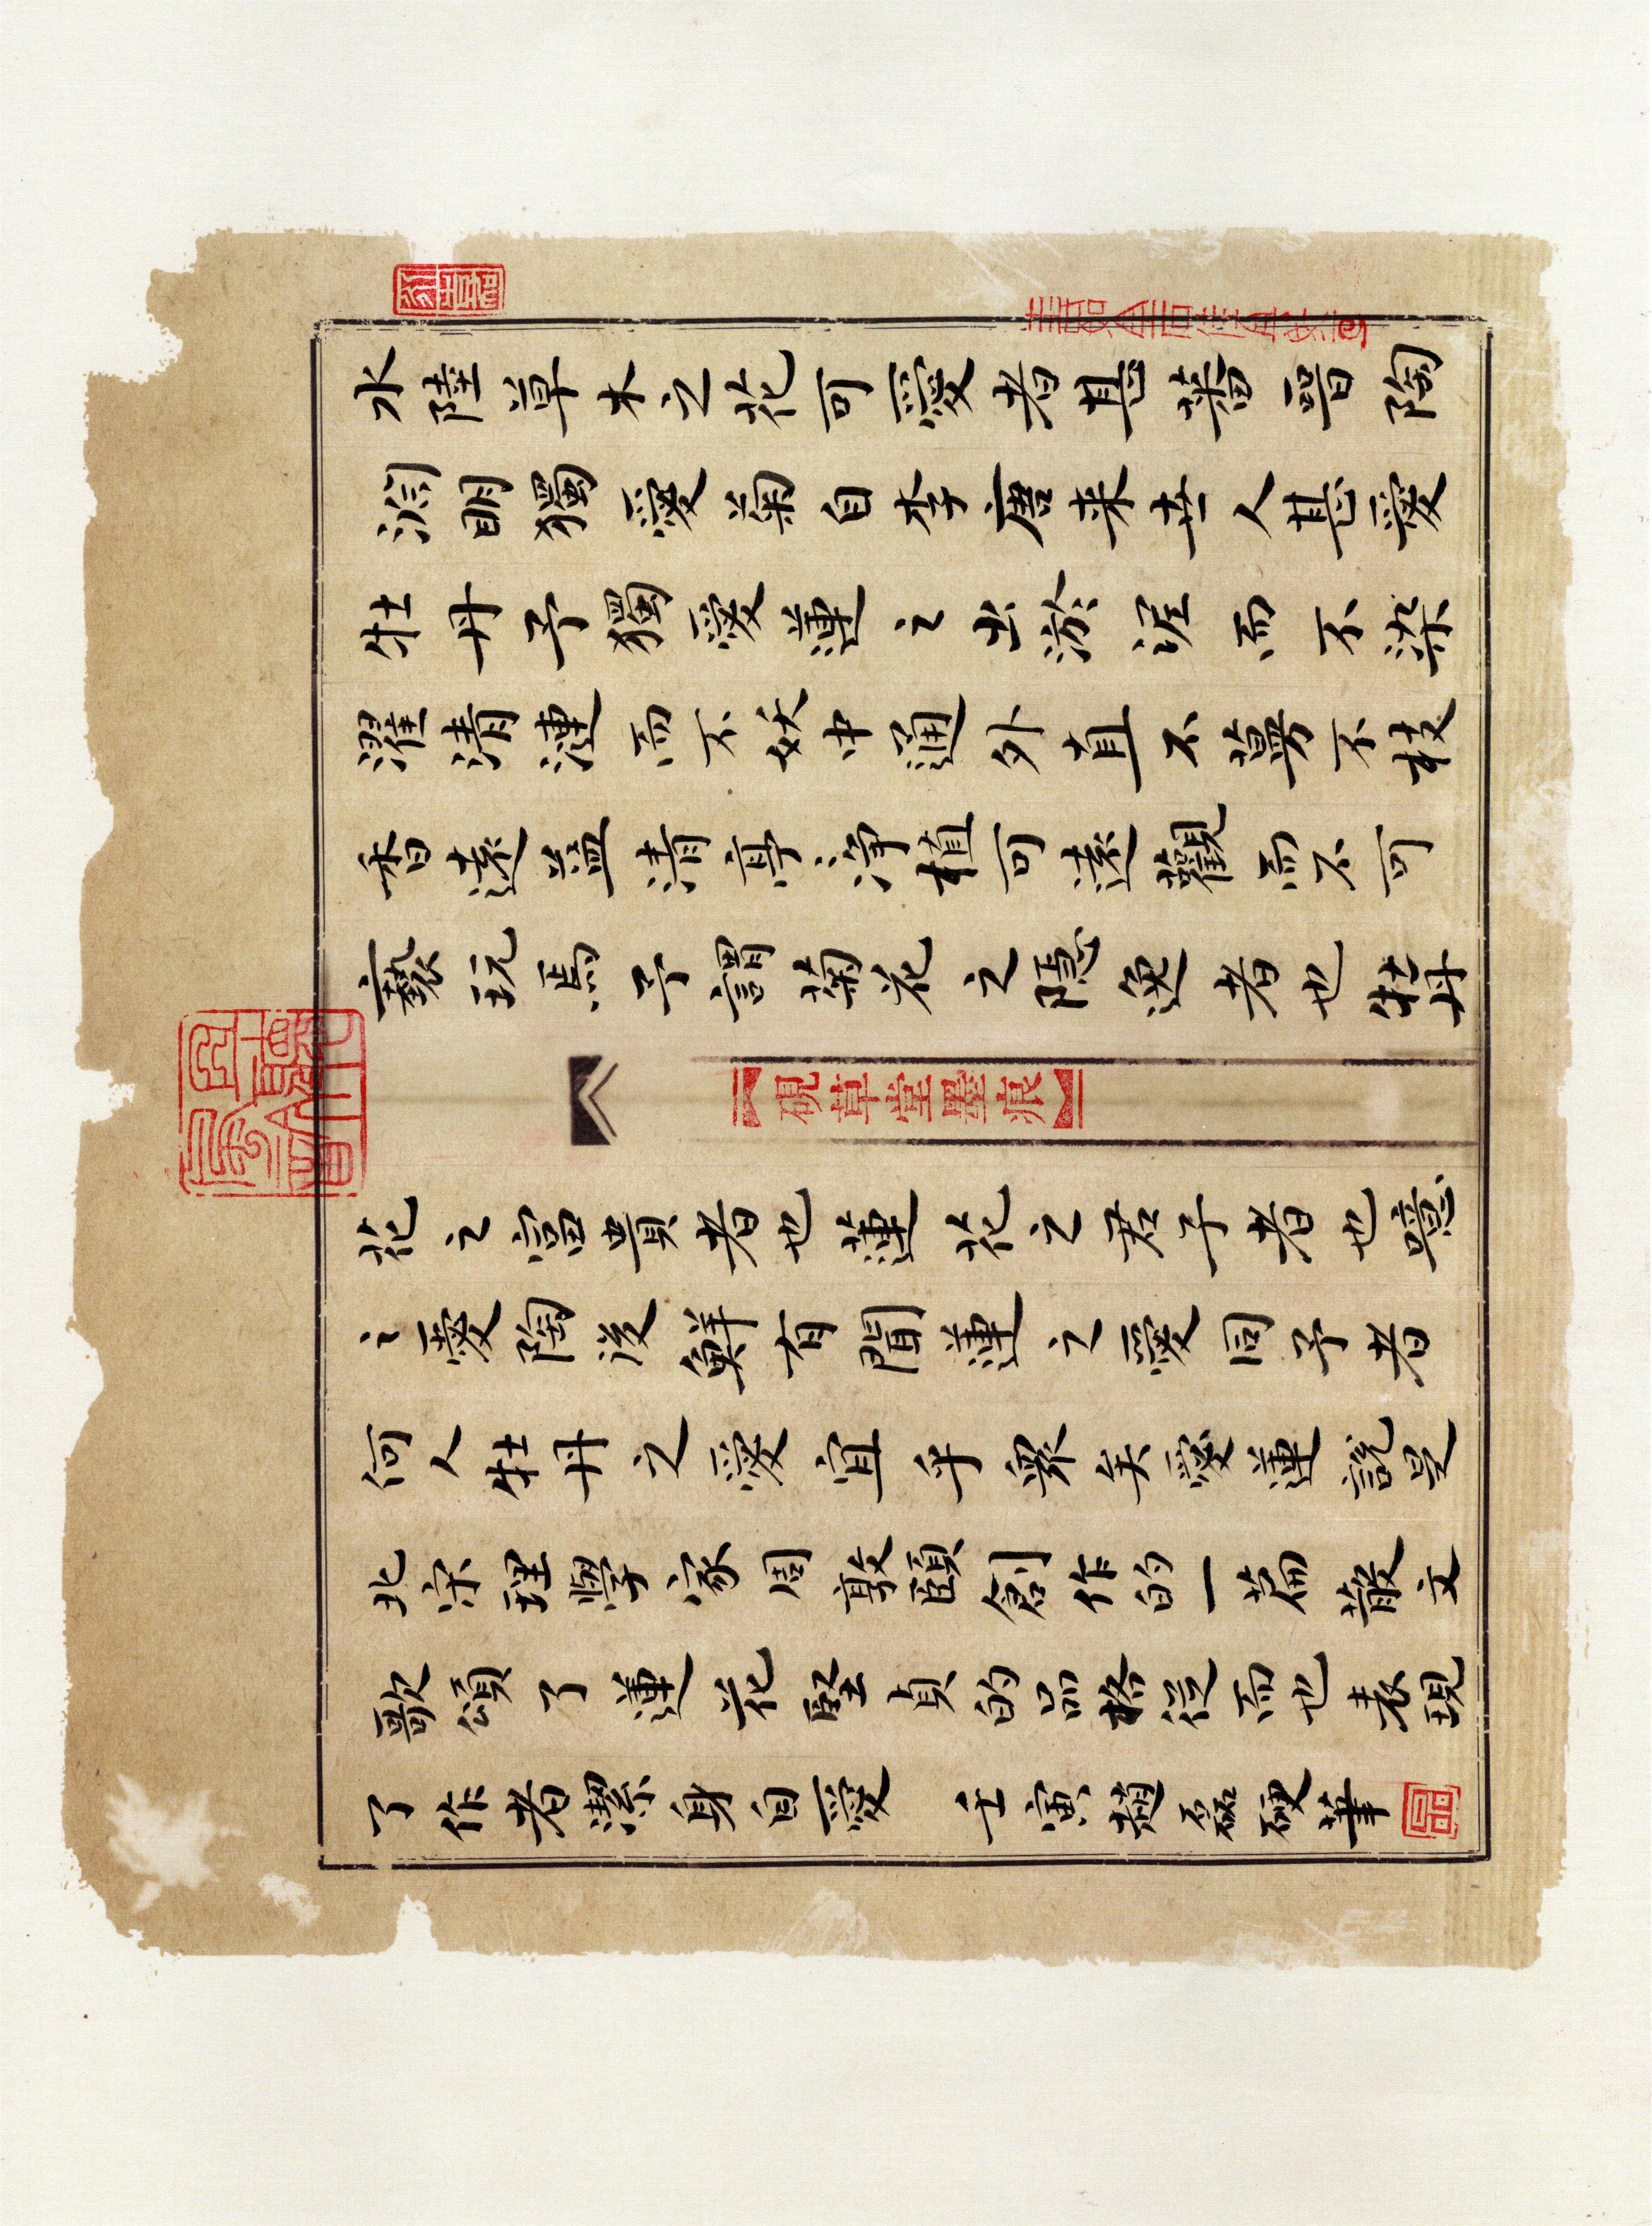 水陸草木之花可愛者甚蕃晉陶
淵明獨愛菊自李唐来世人甚愛
牡丹予獨愛蓮之出淤泥而不染
濯清漣而不妖中通外直不蔓不枝
香遠益清亭淨植可遠觀而不可
褻玩焉予謂菊花之隱逸者也牡丹
【硯草堂墨痕】
花之富貴者也蓮花之君子者也噫
之愛陶後鮮有聞蓮之愛同予者
何人牡丹之愛宜乎衆矣愛蓮說是
北宋理學家周敦頤創作的一篇散文
歌頌了蓮花堅貞的品格從而也表現
了作者潔身自愛 壬寅趙磊硬筆